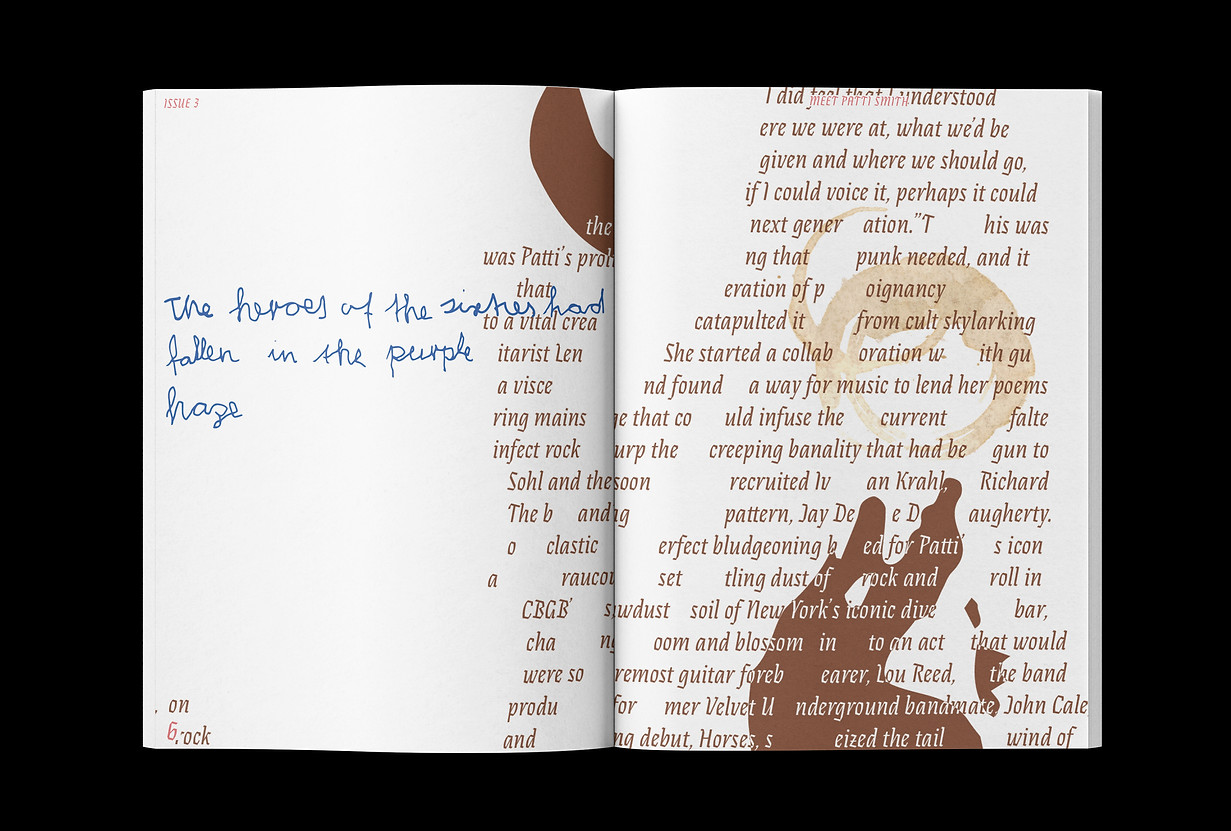 ISSUE 3
The heroes of the sixties had
fallen in the purple
haze
the
was Patti's
that
to a vital crea
itarist Len
a visce
ring mains
infect rock
Sohl and the
The b and
o clastic
a
CBGB'
cha
were so
produ
and
, on
6 rock
MEET PATTI SMITH
I did feel that I understood
ere we were at, what we'd be
given and where we should go,
if I could voice it, perhaps it could
next gener ation.”T his was
ng that punk needed, and it
eration of p oignancy
catapulted it from cult skylarking
She started a collab oration w ith gu
nd found a way for music to lend her poems
ge that co uld infuse the current falte
urp the creeping banality that had be gun to
soon recruited Iv an Krahl, Richard
ng pattern, Jay De e D augherty.
erfect bludgeoning b ed for Patti' s icon
set tling dust of rock and roll in
sawdust soil of New York's iconic dive bar,
oom and blossom in to an act that would
remost guitar foreb earer, Lou Reed, the band
for mer Velvet U nderground bandmate, John Cale
ng debut, Horses, s eized the tail wind of